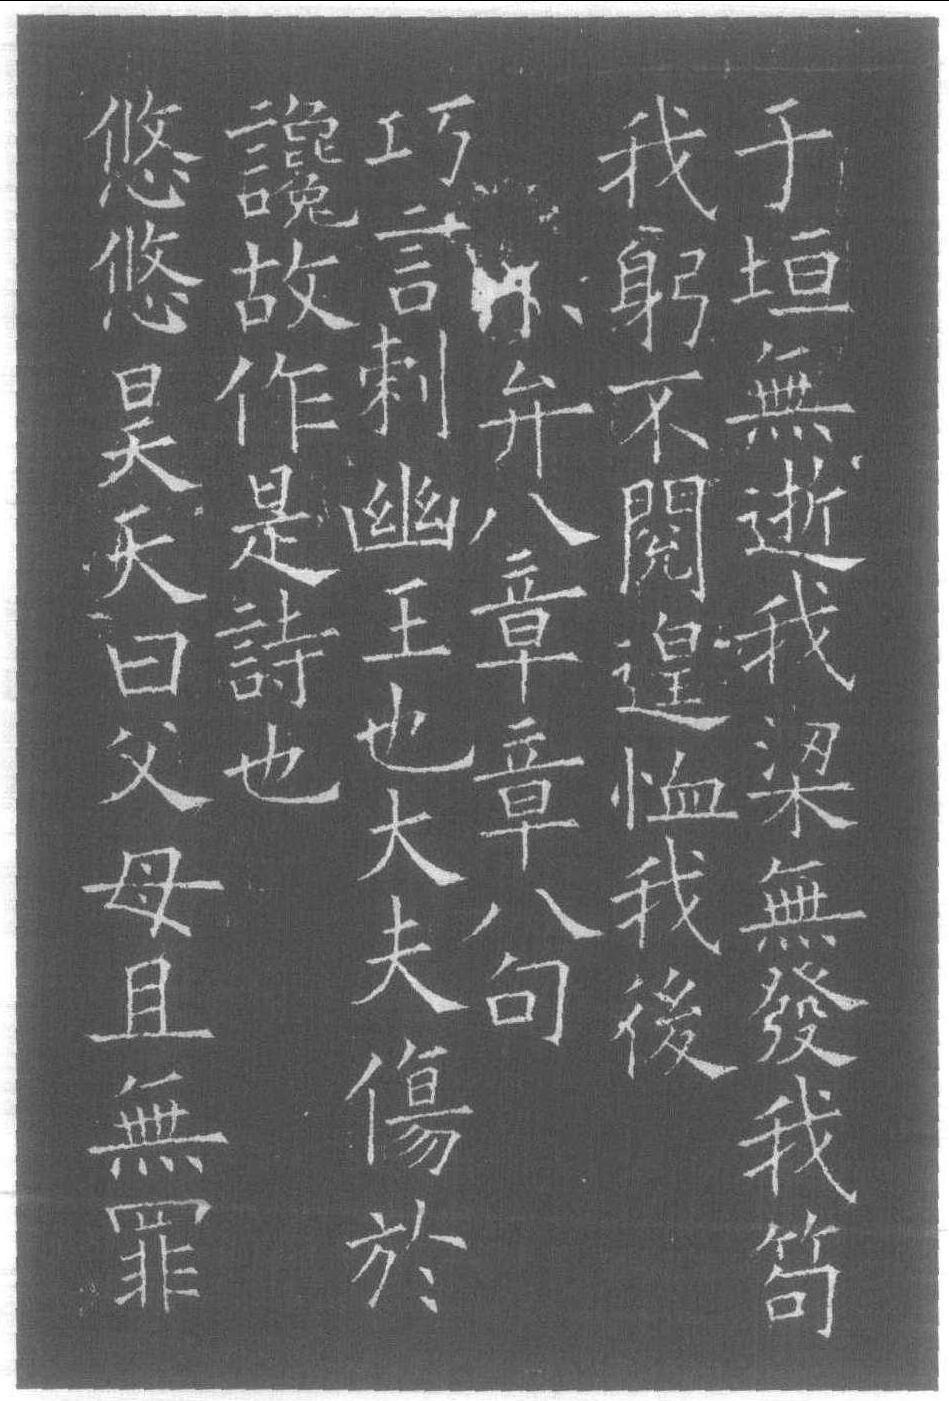 于垣無逝我梁無發我笱
我躬不閱遑恤我後
小弁八章章八句
巧言刺幽王也大夫傷於
讒故作是詩也
悠悠昊天曰父母且無罪